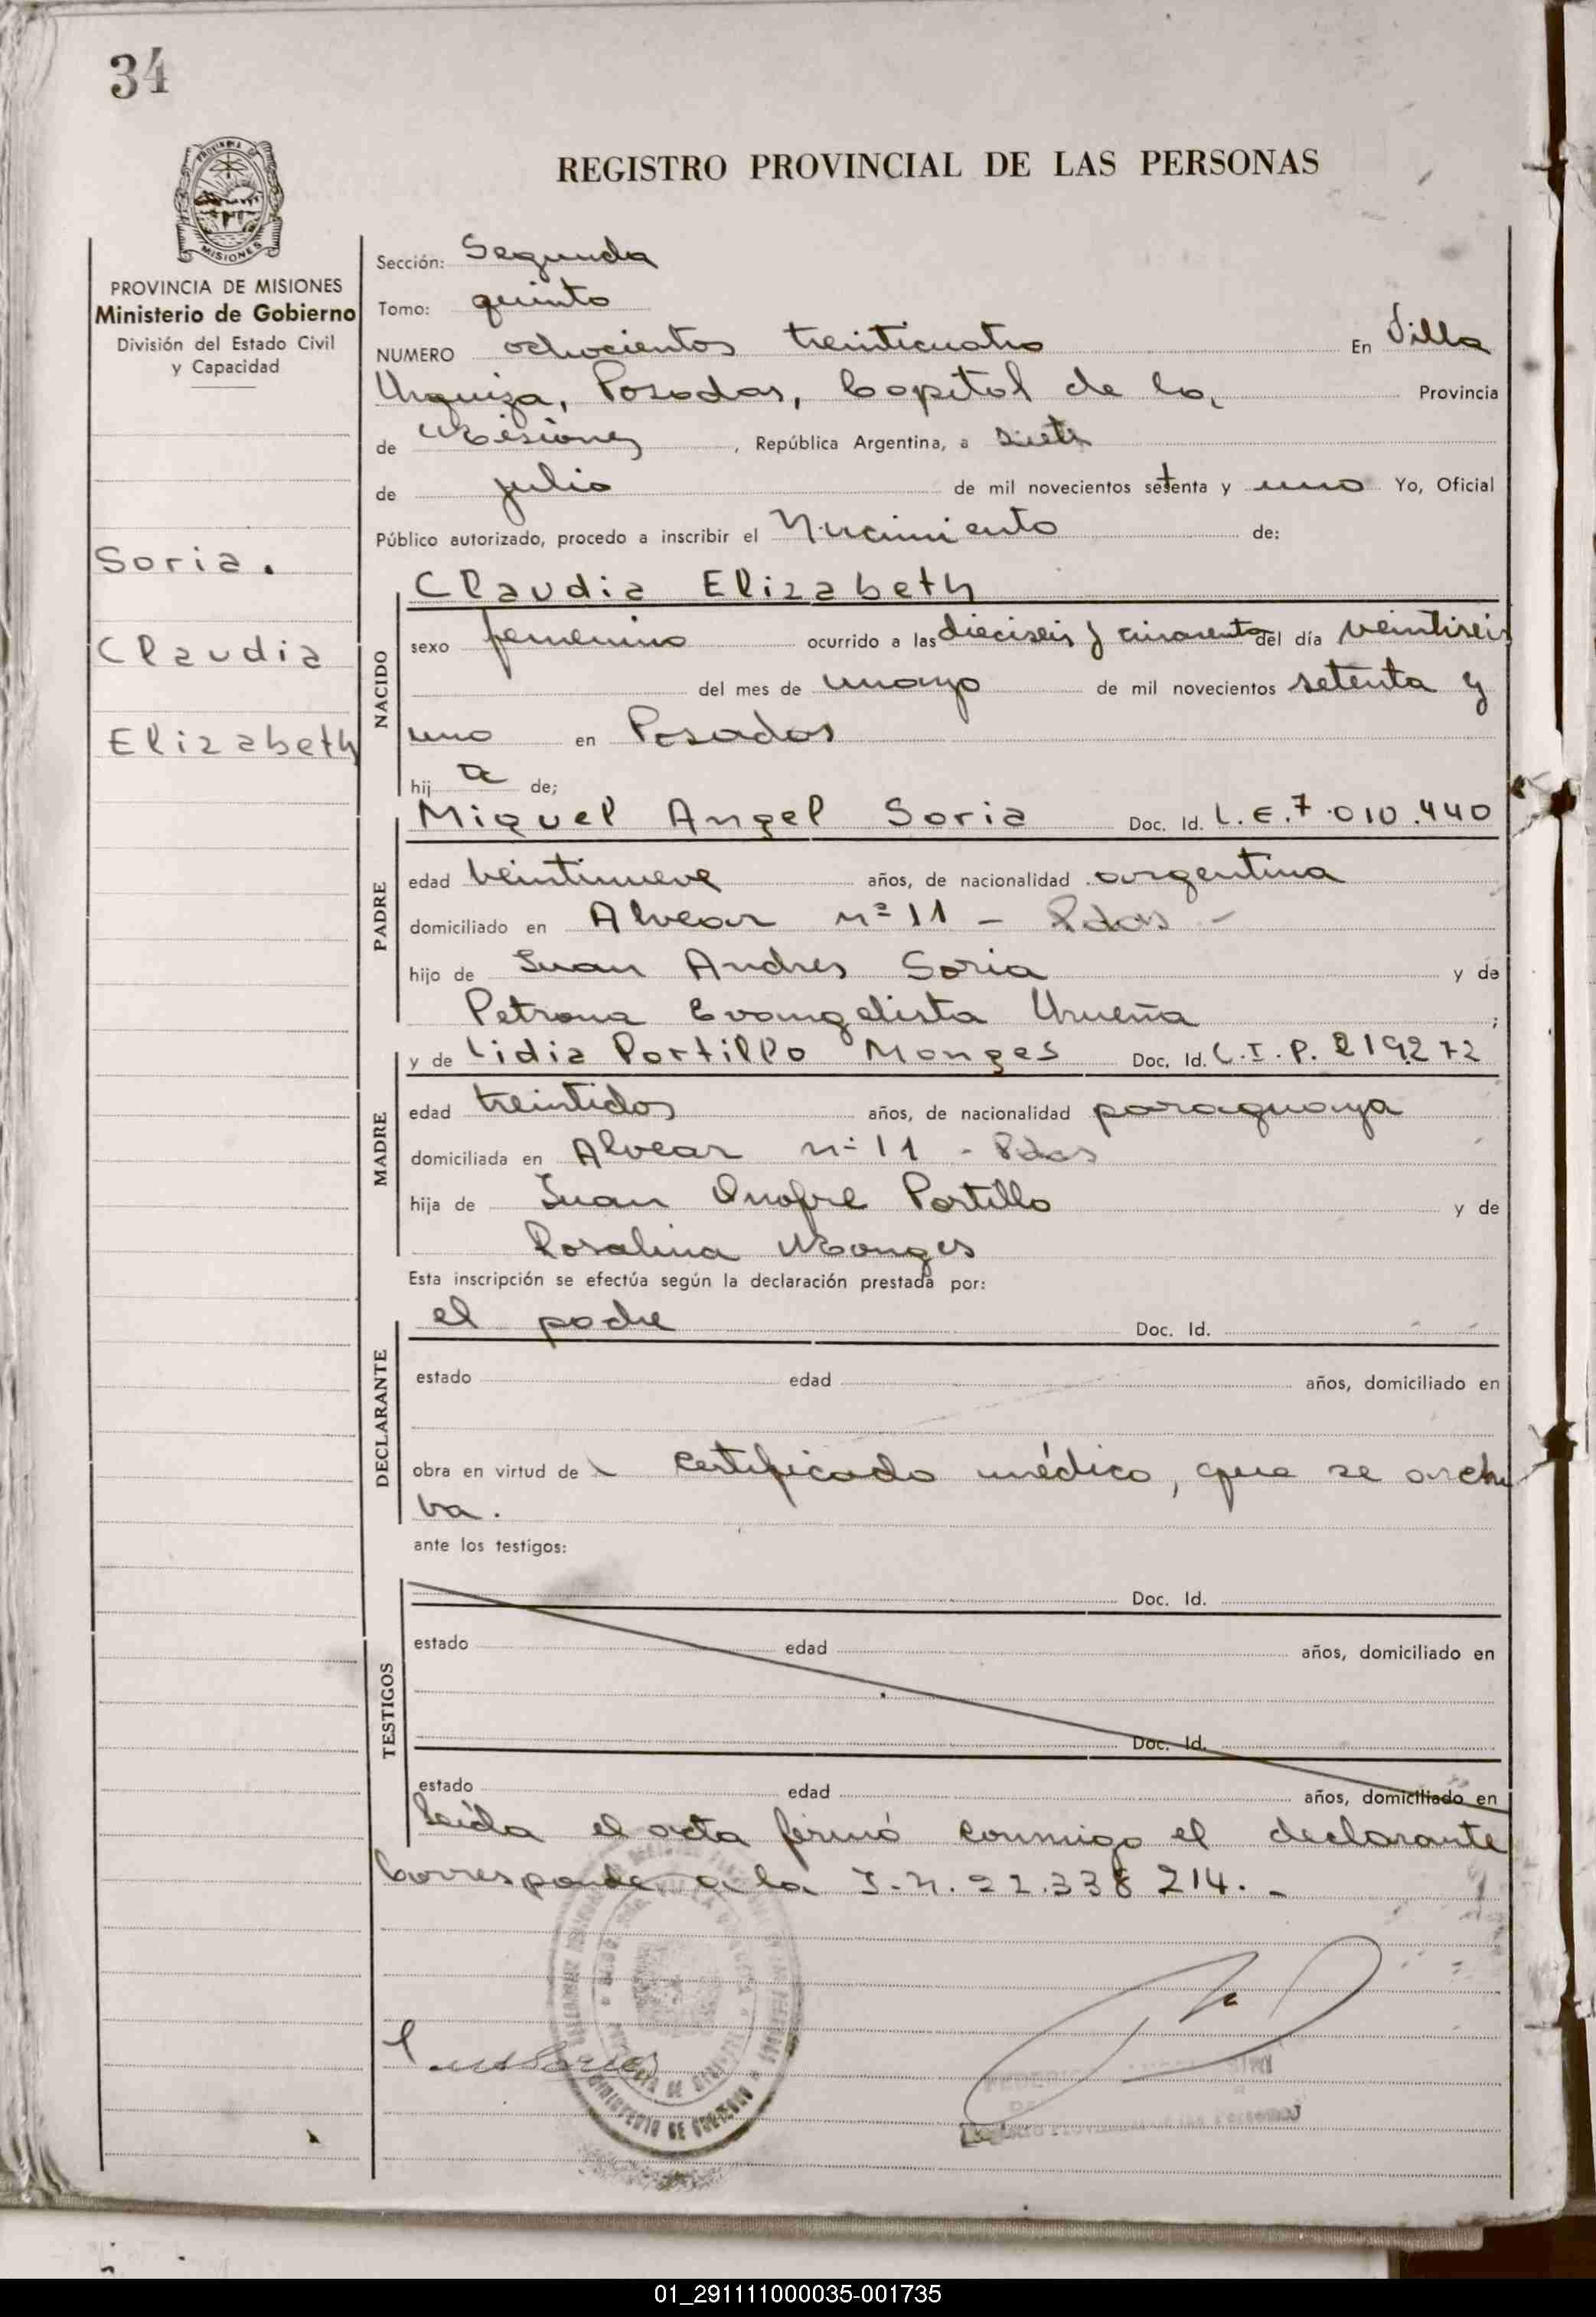 34
PROVINCIA DE
MISIONES
REGISTRO PROVINCIAL DE LAS PERSONAS
PROVINCIA DE MISIONES
Ministerio de Gobierno
División del Estado Civil
y Capacidad
Soria.
Claudia
Elizabeth
Sección: Segunda
Tomo: quinto
NUMERO ochocientos treinticuatro En Villa
Urquiza, Posadas, Capital de la Provincia
de Misiones, República Argentina, a siete
de julio de mil novecientos setenta y uno Yo, Oficial
Público autorizado, procedo a inscribir el Nacimiento de:
NACIDO
Claudia Elizabeth
sexo femenino ocurrido a las dieciseis y cincuenta del día veintiseis
del mes de mayo de mil novecientos setenta y
uno en Posadas
hij a de;
PADRE
Miguel Angel Soria Doc. Id. L.E. 7.010.440
edad veintinueve años, de nacionalidad argentina
domiciliado en Alvear nº 11 - Pdas -
hijo de Juan Andres Soria y de
Petrona Evangelista Urueña ;
MADRE
y de Lidia Portillo Monges Doc. Id. C.I.P. 219272
edad treintidos años, de nacionalidad paraguaya
domiciliada en Alvear nº 11 - Pdas
hija de Juan Onofre Portillo y de
Rosalina Monges
Esta inscripción se efectúa según la declaración prestada por:
DECLARANTE
el padre Doc. Id.
estado edad años, domiciliado en
obra en virtud de certificado médico, que se archi
va.
ante los testigos:
TESTIGOS
Doc. Id.
estado edad años, domiciliado en
Doc. Id.
estado edad años, domiciliado en
Leída el acta firmó conmigo el declarante
Corresponde a la I.N. 22.338 214. -
MINISTERIO DE GOBIERNO
01_291111000035-001735